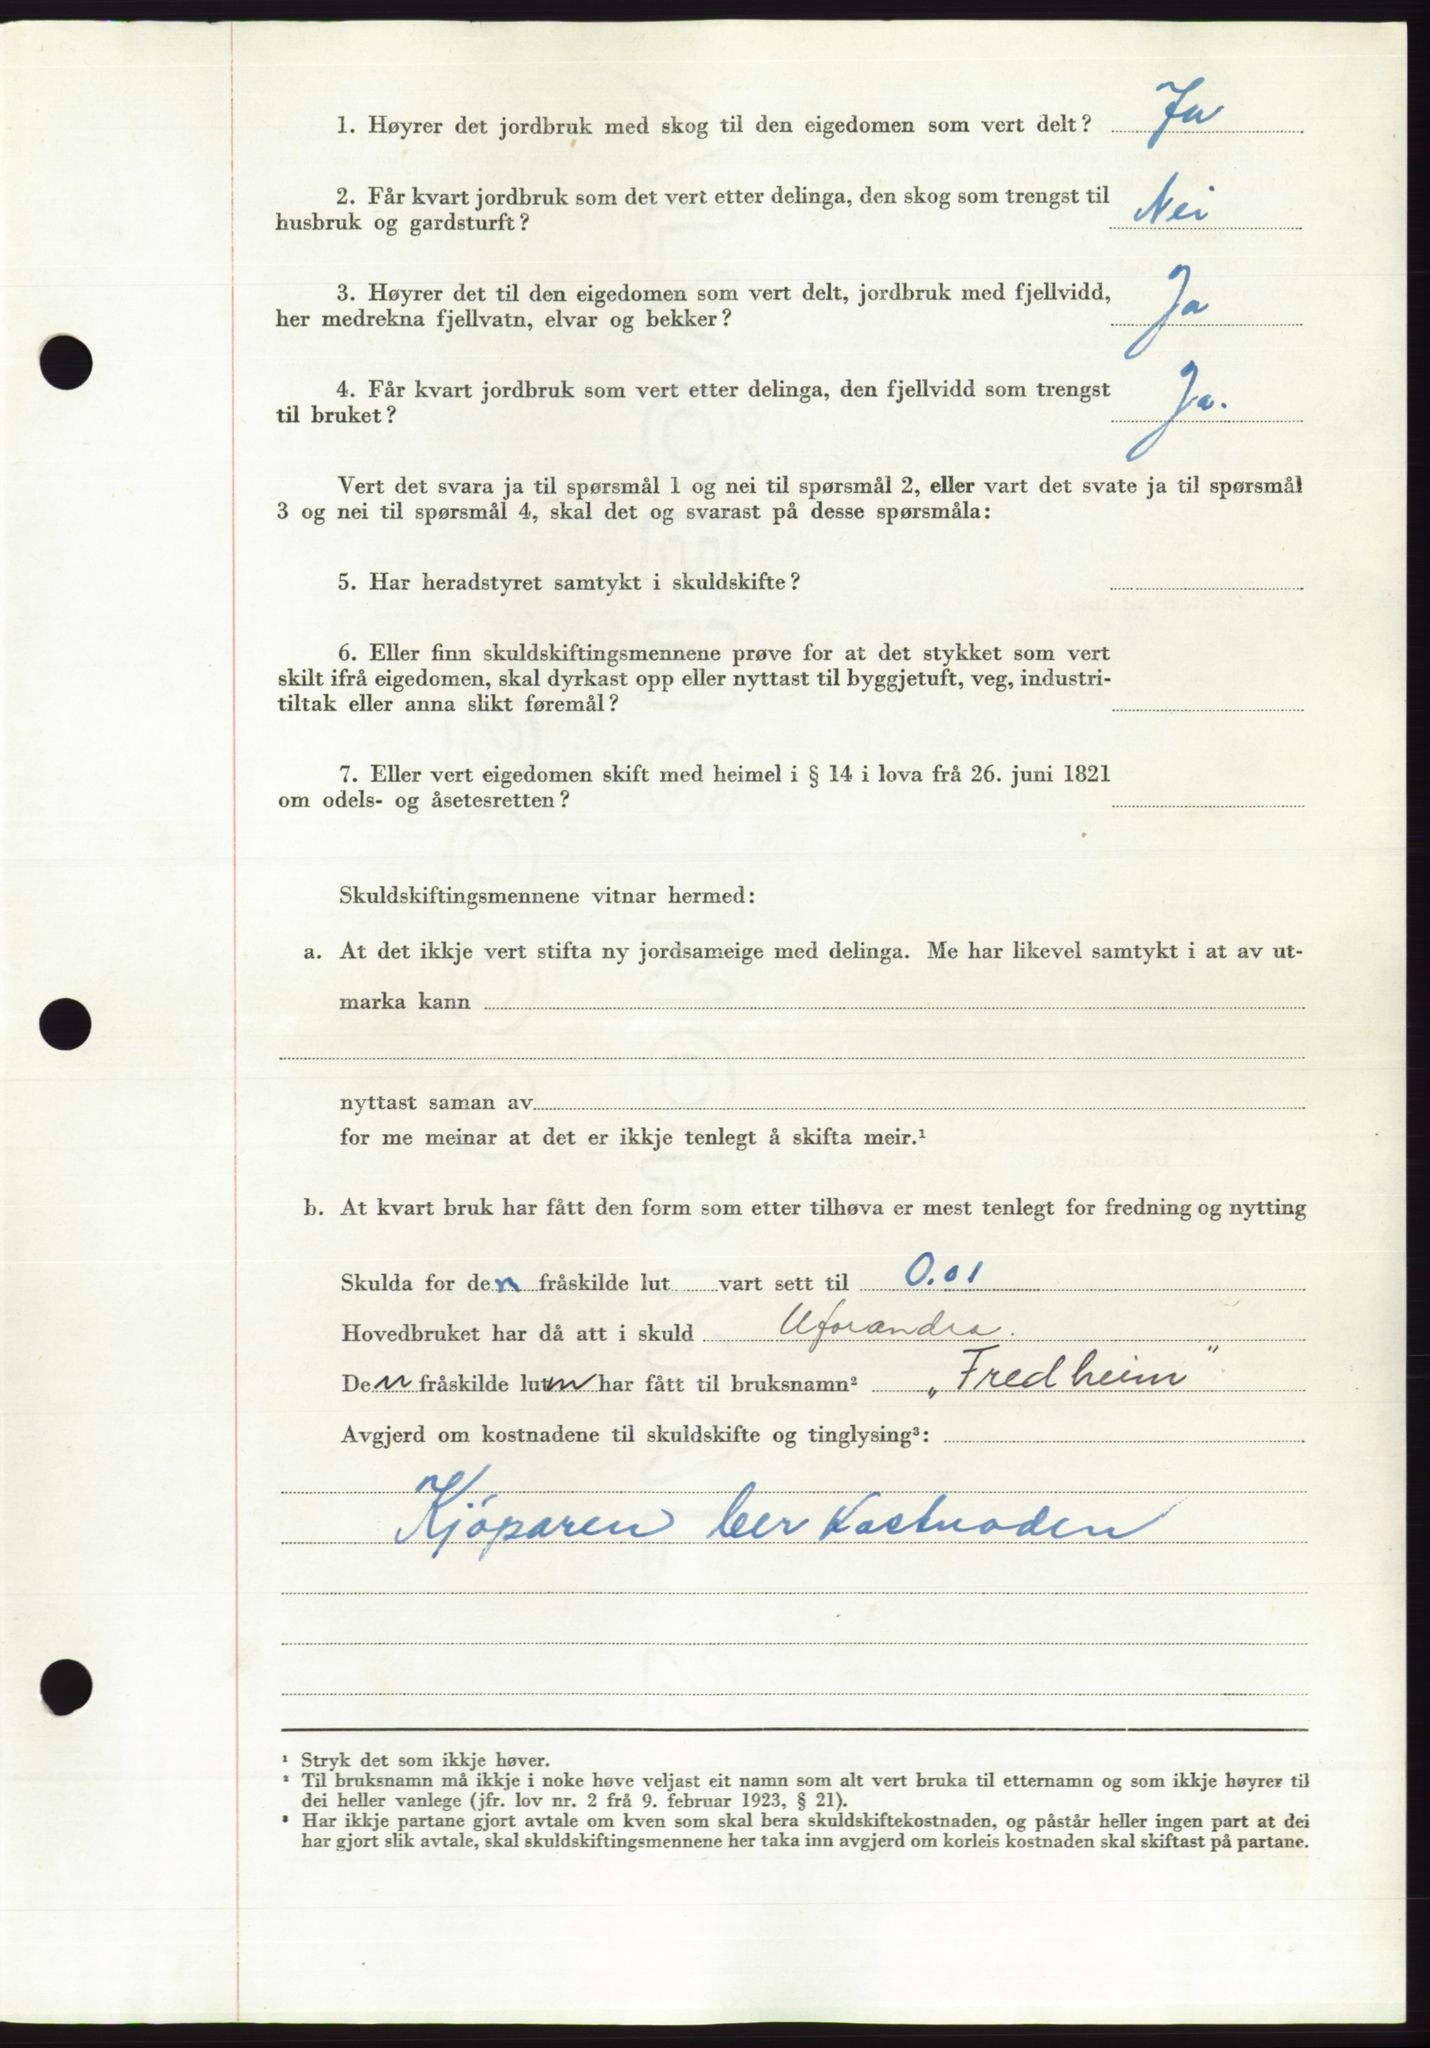 1. Høyrer det jordbruk med skog til den eigedomen som vert delt? Ja
2. Får kvart jordbruk som det vert etter delinga, den skog som trengst til
husbruk og gardsturft? Nei
3. Høyrer det til den eigedomen som vert delt, jordbruk med fjellvidd,
her medrekna fjellvatn, elvar og bekker? Ja
4. Får kvart jordbruk som vert etter delinga, den fjellvidd som trengst
til bruket? Ja.
Vert det svara ja til spørsmål 1 og nei til spørsmål 2, eller vart det svate ja til spørsmål
3 og nei til spørsmål 4, skal det og svarast på desse spørsmåla:
5. Har heradstyret samtykt i skuldskifte?
6. Eller finn skuldskiftingsmennene prøve for at det stykket som vert
skilt ifrå eigedomen, skal dyrkast opp eller nyttast til byggjetuft, veg, industri-
tiltak eller anna slikt føremål?
7. Eller vert eigedomen skift med heimel i § 14 i lova frå 26. juni 1821
om odels- og åsetesretten?
Skuldskiftingsmennene vitnar hermed:
a. At det ikkje vert stifta ny jordsameige med delinga. Me har likevel samtykt i at av ut-
marka kann
nyttast saman av
for me meinar at det er ikkje tenlegt å skifta meir.¹
b. At kvart bruk har fått den form som etter tilhøva er mest tenlegt for fredning og nytting
Skulda for den fråskilde lut vart sett til 0.01
Hovedbruket har då att i skuld Uforandra.
Den fråskilde luten har fått til bruksnamn² „Fredheim"
Avgjerd om kostnadene til skuldskifte og tinglysing³:
Kjöparen ber Kostnaden
¹ Stryk det som ikkje høver.
² Til bruksnamn må ikkje i noke høve veljast eit namn som alt vert bruka til etternamn og som ikkje høyrer til
dei heller vanlege (jfr. lov nr. 2 frå 9. februar 1923, § 21).
³ Har ikkje partane gjort avtale om kven som skal bera skuldskiftekostnaden, og påstår heller ingen part at dei
har gjort slik avtale, skal skuldskiftingsmennene her taka inn avgjerd om korleis kostnaden skal skiftast på partane.